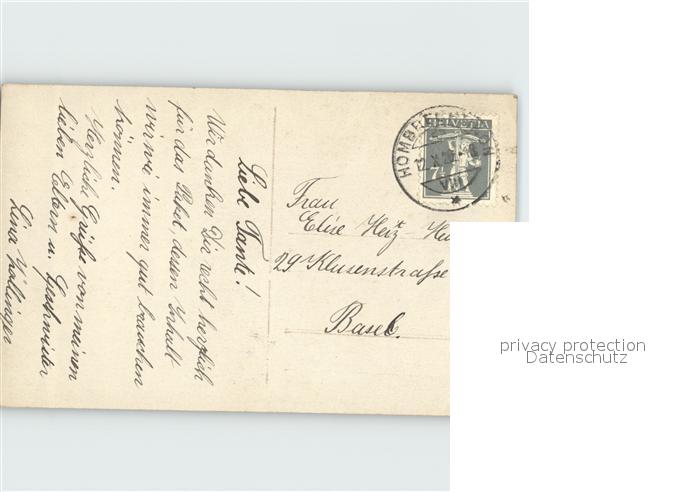 Liebe Tante!
Wir danken Dir recht herzlich
für das Paket, dessen Inhalt
wir wie immer gut brauchen
können.
Herzliche Grüße von meinen
lieben Eltern u. Geschwister
Lina
HELVETIA
7
HOMBR
XII
Frau
Elise Heiz-
29 Klusenstrasse
Basel.
privacy protection
Datenschutz